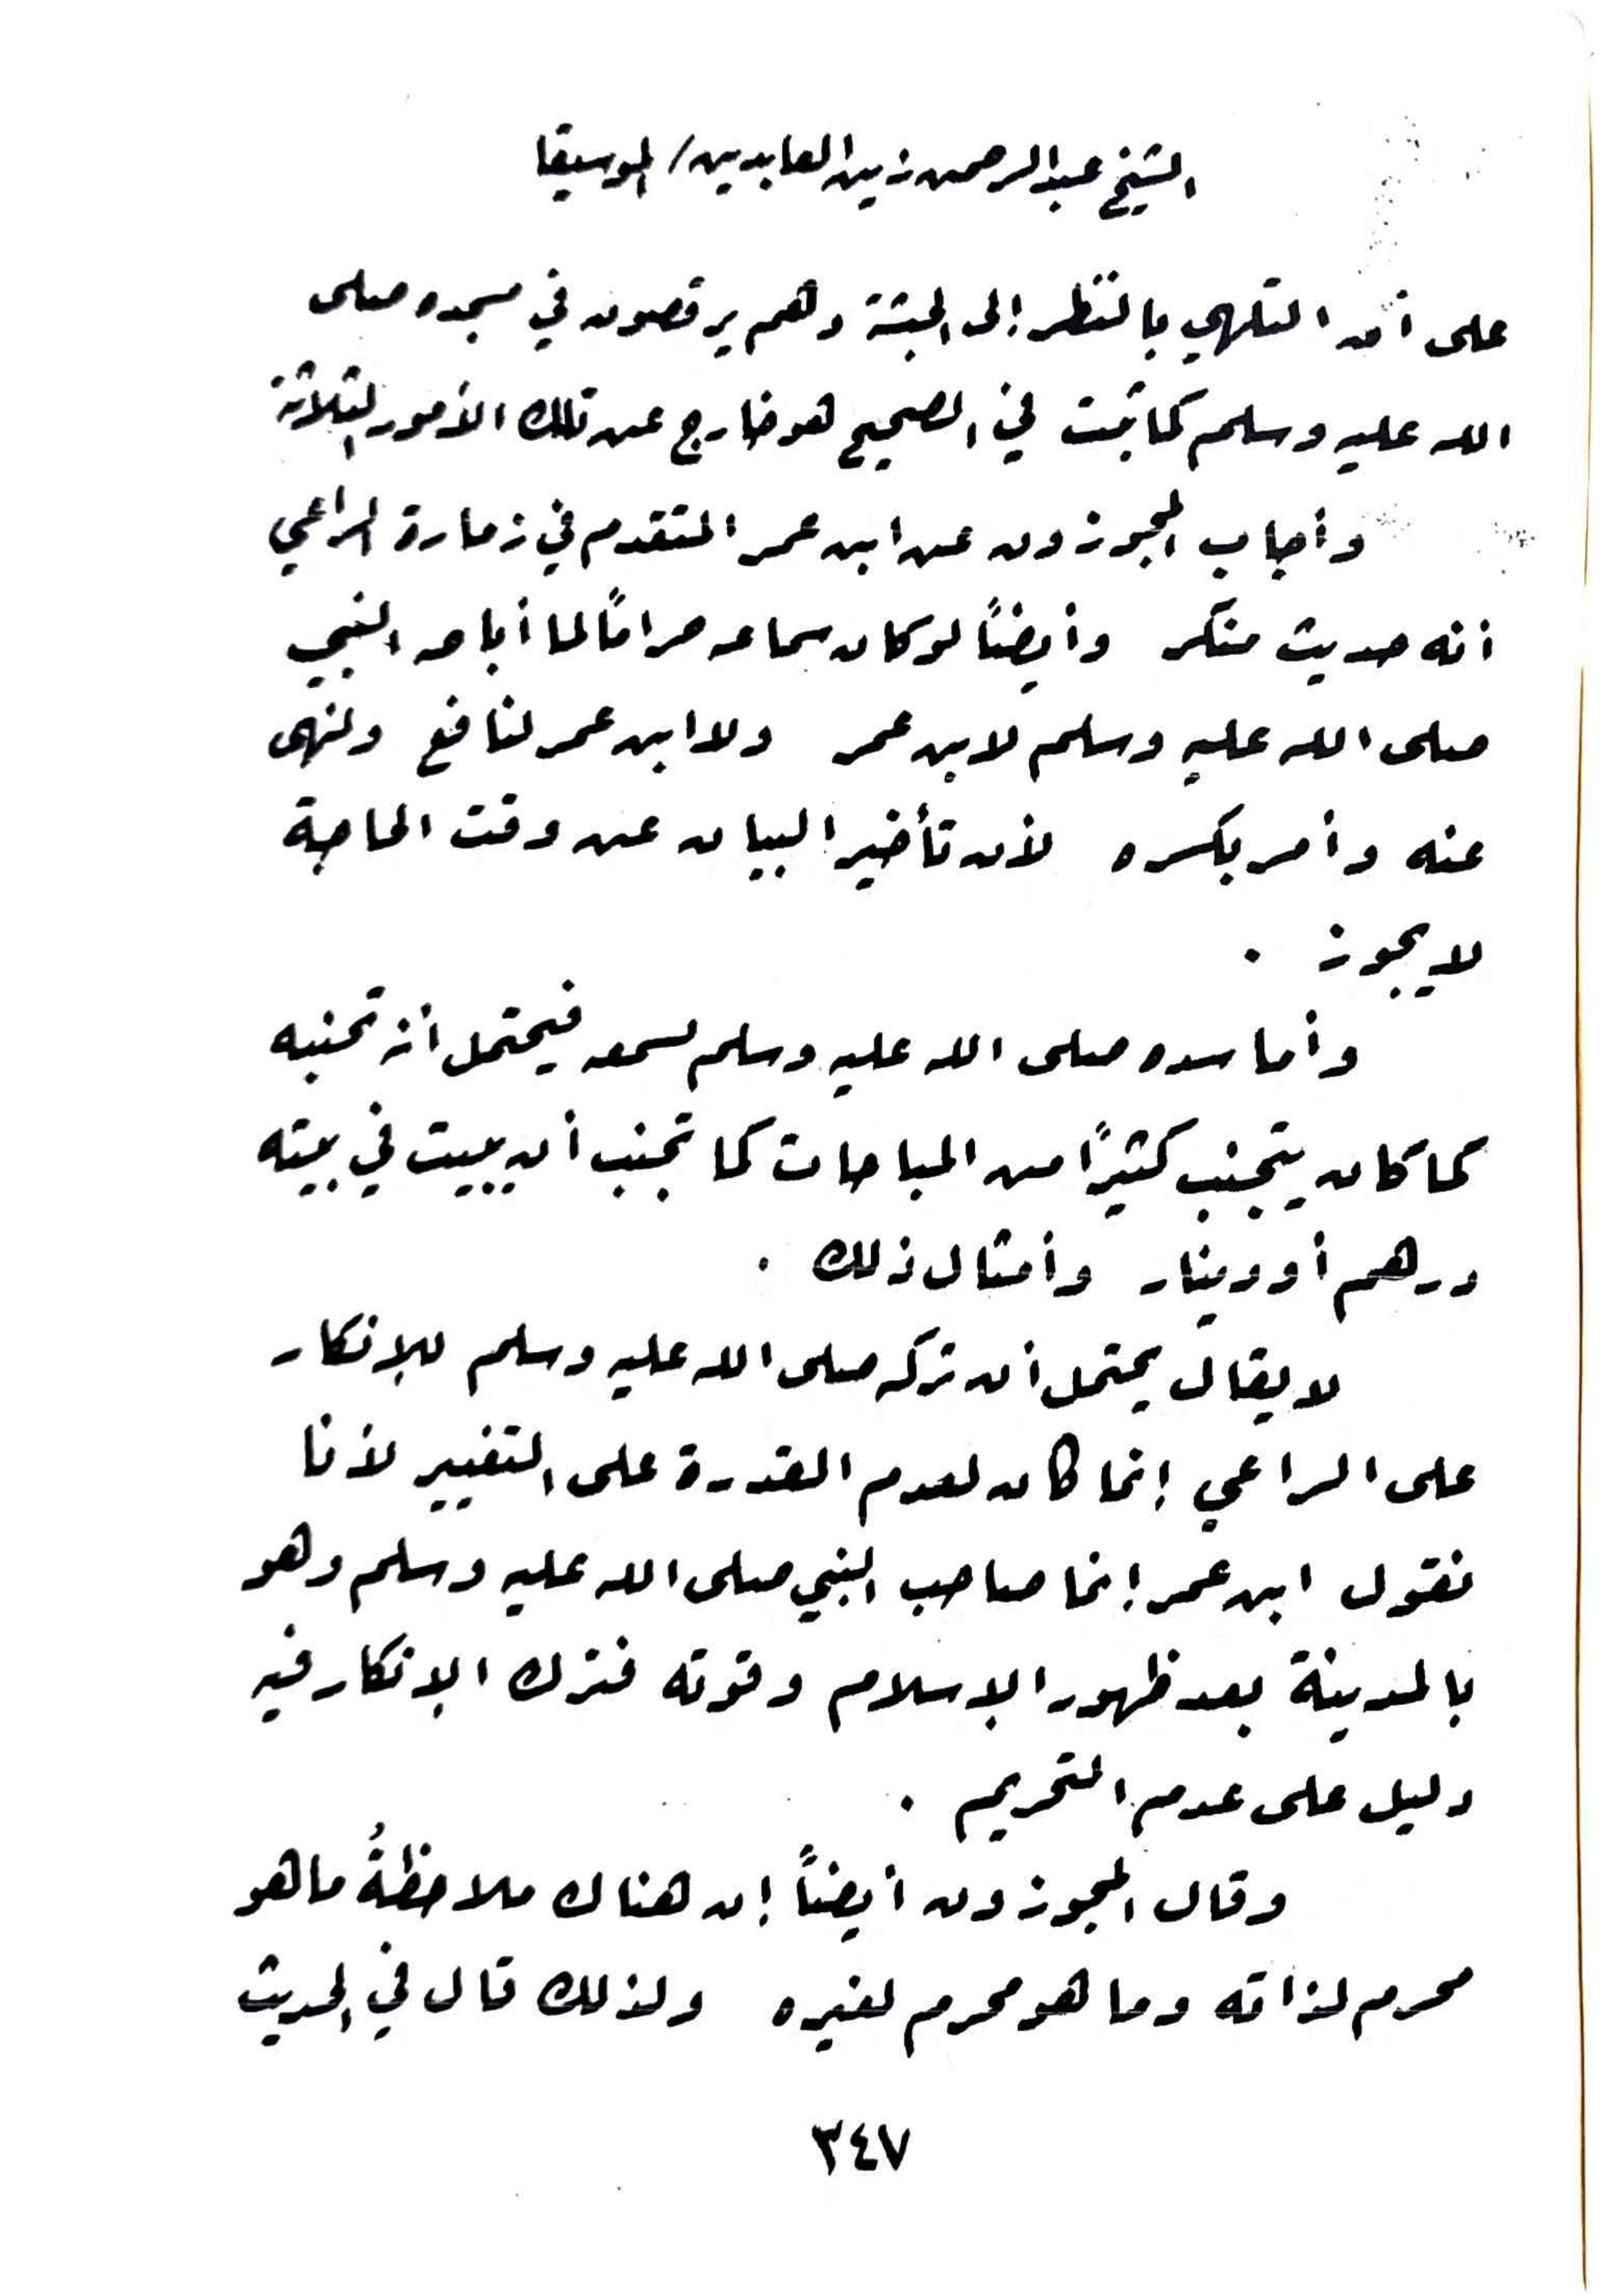 الشيخ عبدالرحمن زين العابدين / الموسيقا
على أن التلهي بالنظر إلى الحبشة وهم يرقصون في مسجده صلى
الله عليه وسلم كما ثبت في الصحيح هو خارج عن تلك الأمور الثلاثة
وأجاب المجوزون عن ابن عمر المتقدم في زمارة الراعي
أنه حديث منكر وأيضاً لو كان سماعه حراماً لما أباحه النبي
صلى الله عليه وسلم لابن عمر ولا ابن عمر لنافع ولنهى
عنه وأمر بكسره لأن تأخير البيان عن وقت الحاجة
لا يجوز .
وأما سده صلى الله عليه وسلم لسمعه فيحتمل أنه تجنبه
كما كان يتجنب كثيراً من المباحات كما تجنب أن يبيت في بيته
درهم أو دينار وأمثال ذلك .
لا يقال يحتمل أن تركه صلى الله عليه وسلم للإنكار
على الراعي إنما كان لعدم القدرة على التغيير لأنا
نقول ابن عمر إنما صاحب النبي صلى الله عليه وسلم وهو
بالمدينة بعد ظهور الإسلام وقوته فترك الإنكار فيه
دليل على عدم التحريم .
وقال المجوزون أيضاً إن هناك ملاحظةُ ما هو
محرم لذاته وما هو محرم لغيره ولذلك قال في الحديث
٣٤٧